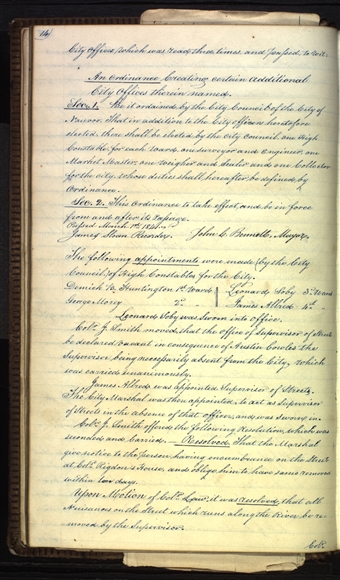 14
City Offices, which was read three times, and passed, to wit:
An Ordinance Creating certain additional
City Offices therein named.
Sec. 1. Be it ordained by the City Council of the City of
Nauvoo, That in addition to the City officers heretofore
elected, there shall be elected by the City Council, one High
Constable for each Ward, one surveyor and Engineer, one
Market Master, one Weigher and Sealer and one Collector
for the city, whose duties shall hereafter be defined by
Ordinance.
Sec. 2. This Ordinance to take effect and be in force
from and after its Passage.
Passed March 1st 1841.
James Sloan Recorder. John C. Bennett, Mayor.
The following appointments were made by the City
Council, of High Constables for the City.
Dimick B. Huntington 1st Ward Leonard Soby 3d Ward
George Morey 2d " James Allred 4th "
Leonard Soby was Sworn into Office.
Coln. J. Smith moved, that the office of Supervisor of Streets
be declared Vacant in consequence of Austin Cowles the
Supervisor being necessarily absent from the City, which
was carried unanimously.
James Allred was appointed Supervisor of Streets.
The City Marshal was then appointed, to act as Supervisor
of Streets in the absence of that officer, and was sworn in.
Coln. J. Smith offered the following Resolution, which was
seconded and carried. Resolved, That the Marshal
give notice to the person having encumbrance on the Street
at Coln. Rigdon's House, and oblige him to have same removed
within two days.
Upon Motion of Coln. Law, it was resolved, that all
Nuisances on the Street which runs along the River, be re-
moved by the Supervisor.
Coln.